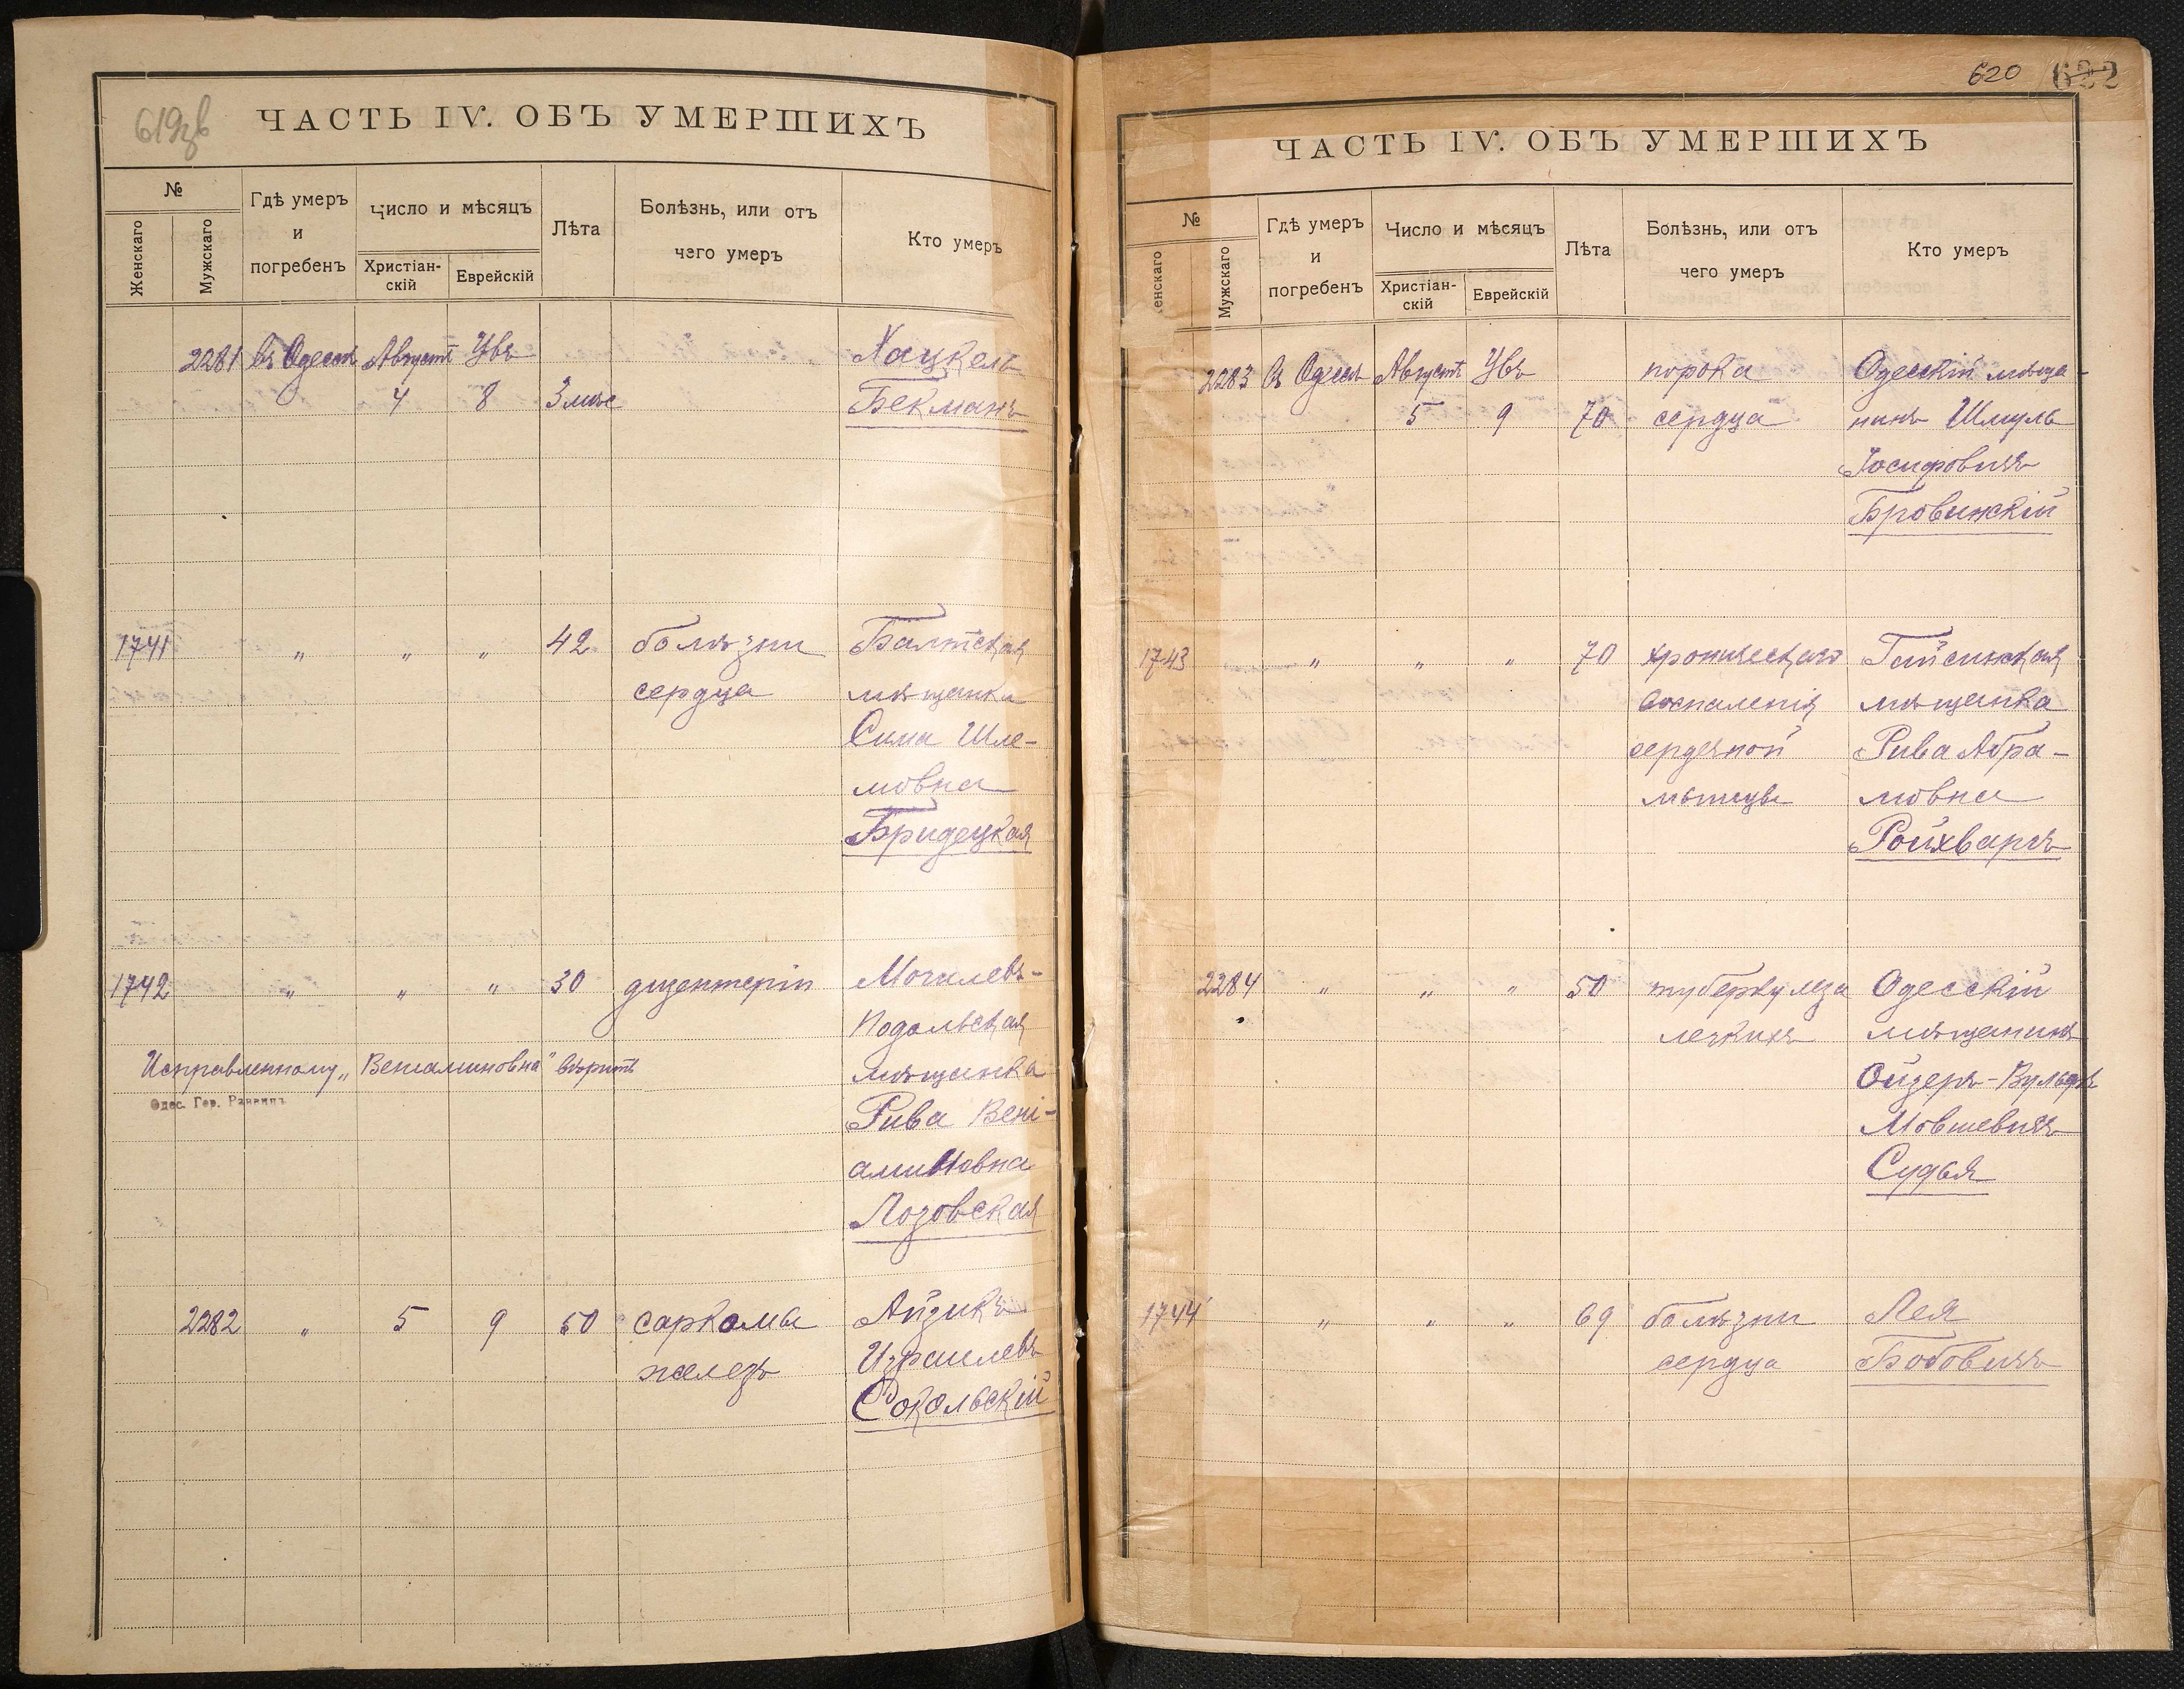 619зв
ЧАСТЬ IV. ОБЪ УМЕРШИХЪ
№
Женскаго
Мужскаго
Гдѣ умеръ
и
погребенъ
Число и мѣсяцъ
Христіан-
скій
Еврейскій
Лѣта
Болѣзнь, или отъ
чего умеръ
Кто умеръ
2281 въ Одессѣ Августъ Убъ Хацкель
4 8 3 мѣс Бекманъ
1741 " " " 42 болѣзни Балтская
сердца мѣщанка
Сима Шле-
мовна
Бридецкая
1742 " " " 30 дизентеріи Могилевъ-
Подольская
Исправленному „Веніаминовна" вѣрить мѣщанка
Одес. Гор. Раввинъ
Рива Вені-
аминовна
Лозовская
2282 " 5 9 50 саркомы Айзикъ
железъ Израилевъ
Сокольскій
620 622
ЧАСТЬ IV. ОБЪ УМЕРШИХЪ
№
енскаго
Мужскаго
Гдѣ умеръ
и
погребенъ
Число и мѣсяцъ
Христіан-
скій
Еврейскій
Лѣта
Болѣзнь, или отъ
чего умеръ
Кто умеръ
2283 въ Одессѣ Августъ Убъ порока Одесскій мѣща-
5 9 70 сердца нинъ Шмуль
Іосифовичъ
Бровинскій
1743 " " " 70 хроническаго Гайсинская
воспаленія мѣщанка
сердечной Рива Абра-
мышцы мовна
Ройхварчъ
2284 " " " 50 туберкулеза Одесскій
легкихъ мѣщанинъ
Ойзеръ-Вульфъ
Мовшевичъ
Судья
1744 " " " 69 болѣзни Лея
сердца Бобовичъ